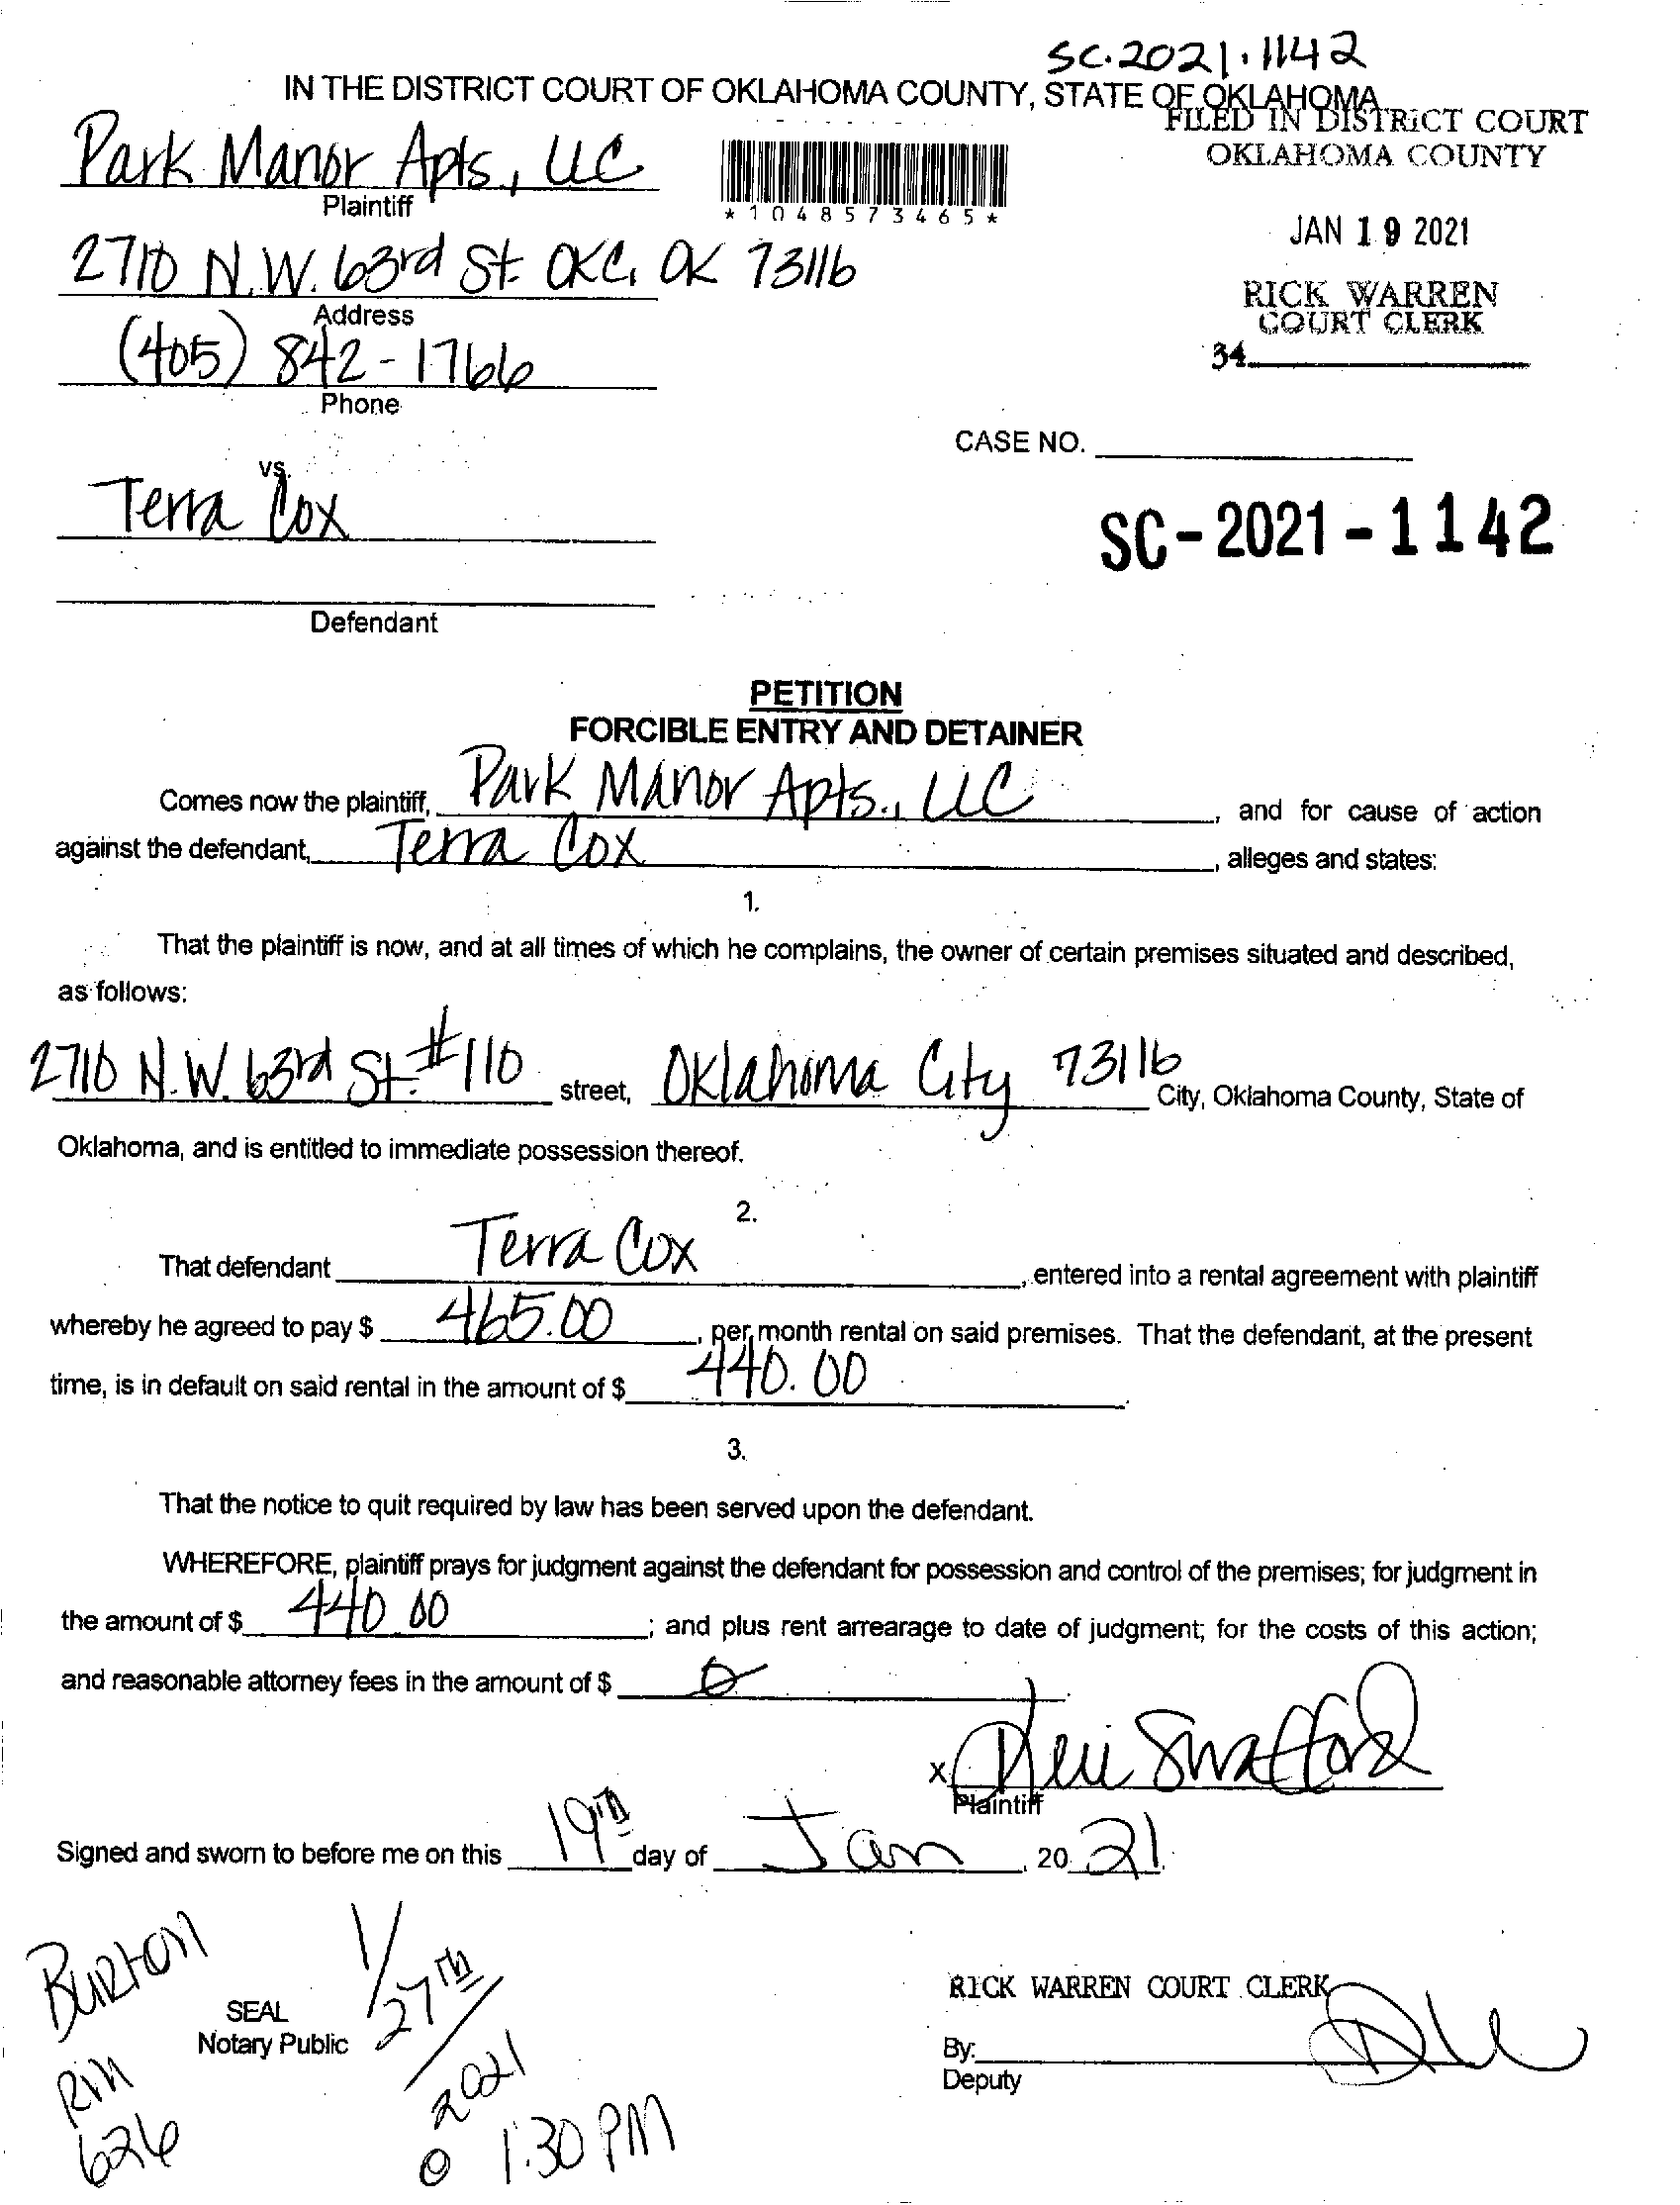 SC.2021.1142
IN THE DISTRICT COURT OF OKLAHOMA COUNTY, STATE OF OKLAHOMA
FILED IN DISTRICT COURT
OKLAHOMA COUNTY
Park Manor Apts., LLC
Plaintiff
*1048573465*
JAN 19 2021
2710 N.W. 63rd St. OKC, OK 73116
Address
RICK WARREN
COURT CLERK
34
(405) 842-1766
Phone
CASE NO.
vs.
Terra Cox
SC-2021-1142
Defendant
PETITION
FORCIBLE ENTRY AND DETAINER
Comes now the plaintiff, Park Manor Apts., LLC, and for cause of action
against the defendant, Terra Cox, alleges and states:
1.
That the plaintiff is now, and at all times of which he complains, the owner of certain premises situated and described,
as follows:
2710 N.W. 63rd St. #110 street, Oklahoma City 73116 City, Oklahoma County, State of
Oklahoma, and is entitled to immediate possession thereof.
2.
That defendant Terra Cox, entered into a rental agreement with plaintiff
whereby he agreed to pay $ 465.00, per month rental on said premises. That the defendant, at the present
time, is in default on said rental in the amount of $ 440.00.
3.
That the notice to quit required by law has been served upon the defendant.
WHEREFORE, plaintiff prays for judgment against the defendant for possession and control of the premises; for judgment in
the amount of $ 440.00; and plus rent arrearage to date of judgment; for the costs of this action;
and reasonable attorney fees in the amount of $ 0
x Swafford
Plaintiff
Signed and sworn to before me on this 19th day of Jan, 20 21.
Burton
Rm
626
SEAL
Notary Public
1/27th/2021
@ 1:30 PM
RICK WARREN COURT CLERK
By:
Deputy